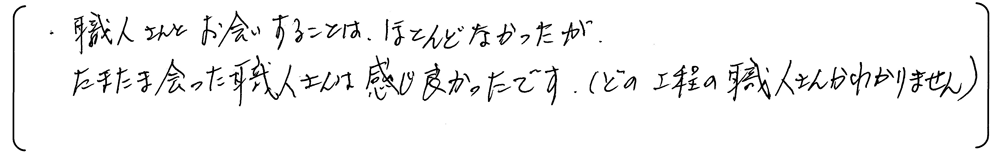 ・職人さんとお会いすることは、ほとんどなかったが、
たまたま会った職人さんは感じ良かったです。(どの工程の職人さんかわかりません)